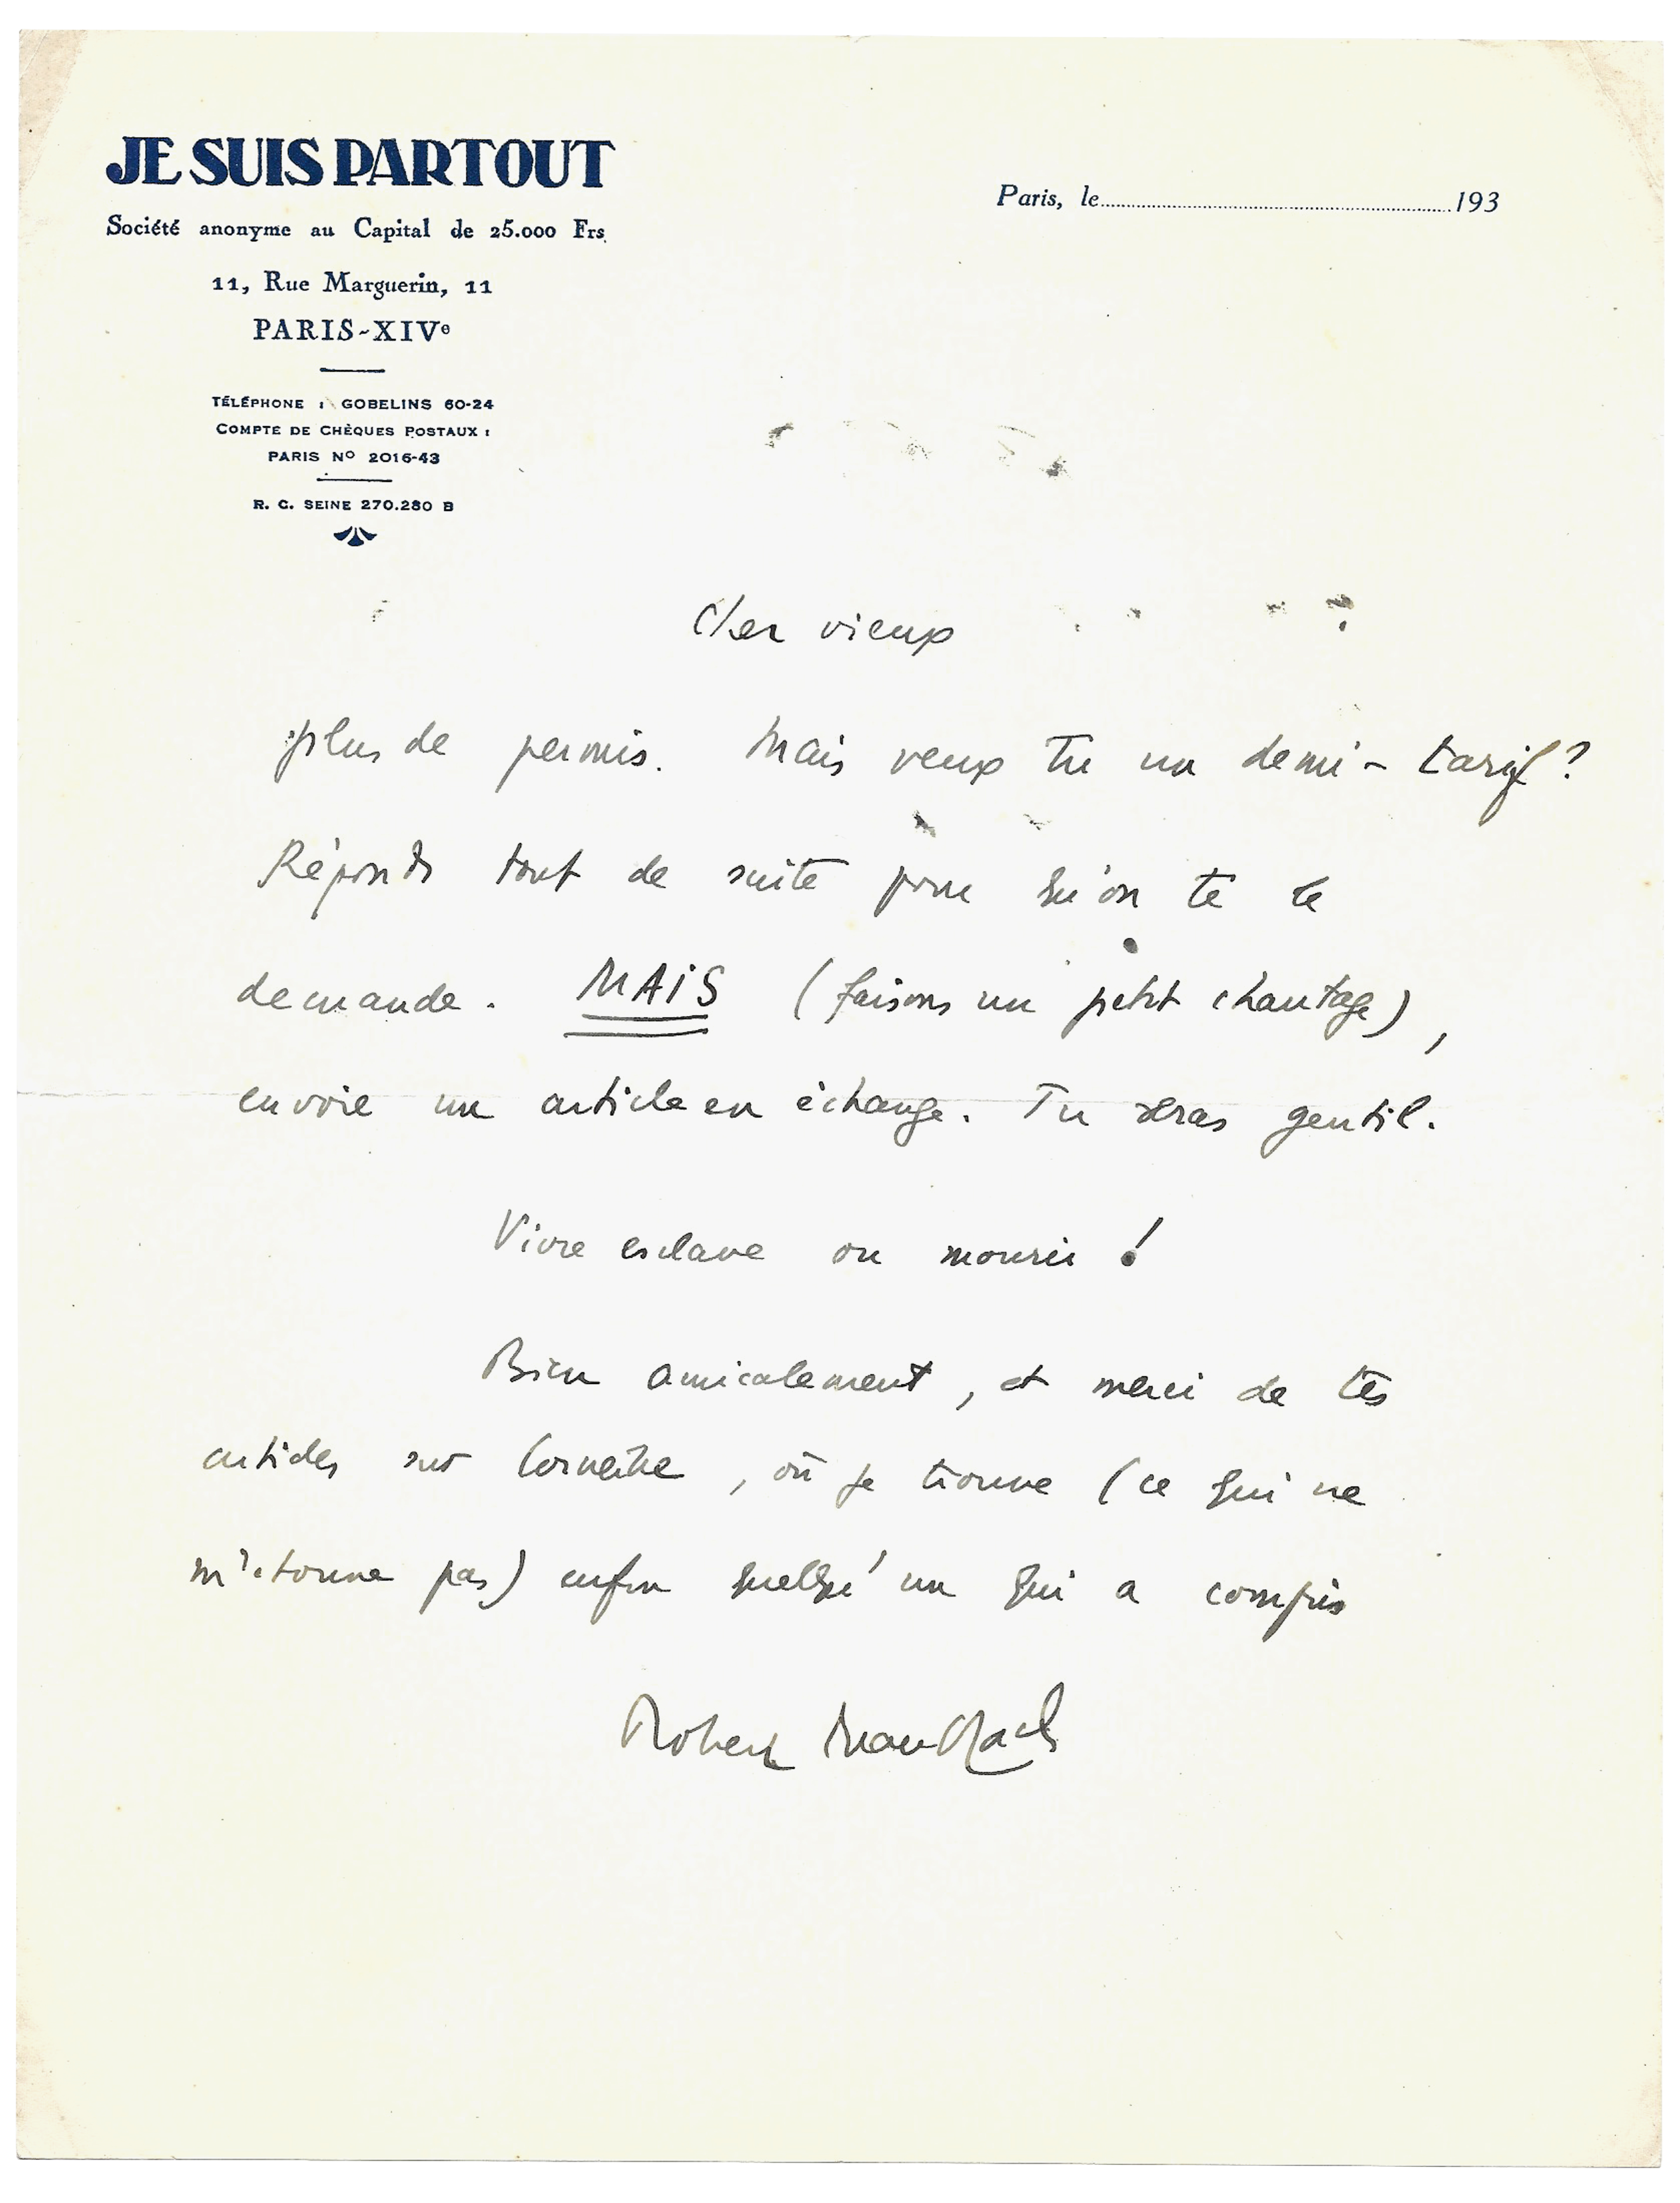 JE SUIS PARTOUT
Société anonyme au Capital de 25.000 Frs.
11, Rue Marguerin, 11
PARIS-XIVe
TÉLÉPHONE : GOBELINS 60-24
COMPTE DE CHÈQUES POSTAUX :
PARIS No 2016-43
R. C. SEINE 270.280 B
Paris, le 193
Cher vieux
plus de permis. Mais veux tu un demi-tarif ?
Réponds tout de suite pour qu'on te le
demande. MAIS (faisons un petit chantage),
envoie un article en échange. Tu seras gentil.
Vivre esclave ou mourir !
Bien amicalement, et merci de tes
articles sur Corneille, où je trouve (ce qui ne
m'étonne pas) enfin quelqu'un qui a compris
Robert Brasillach